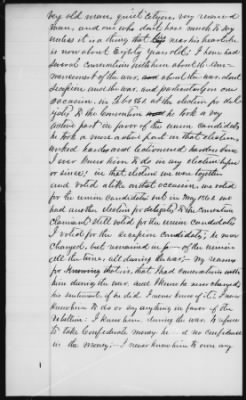 very old man, quiet citizen, very reserved
man, and one who don't have much to say
unless it is a thing that lays near his heart. he
is now about Eighty years old: I have had
several conversations with him about the com-
mencement of the war, and about the war, about
secession and the war, and particularly on one
occasion, in Feb 1861 at the election for del
to the Convention he took a very
active part in favor of the union Candidates
he took a more active part in that election,
worked harder and electioneered harder than
I ever knew him to do in any election before
or since: in that election we were together
and voted alike on that occasion, we voted
for the union Candidates but in May 1861 we
had another election for delegates to the
and Still voted for the union candidate
I voted for the secession Candidate; he never
changed, but remained in favor of the union
all the time, all during the war; my reasons
for knowing that is, that I had conversations with
him during the war, and I knew he never changed
his sentiments if he did I never knew of it: I never
knew him to do or say anything in favor of the
rebellion: I knew him during the war to refuse
to take Confederate money: he had no confidence
in the money; I never knew him to own any